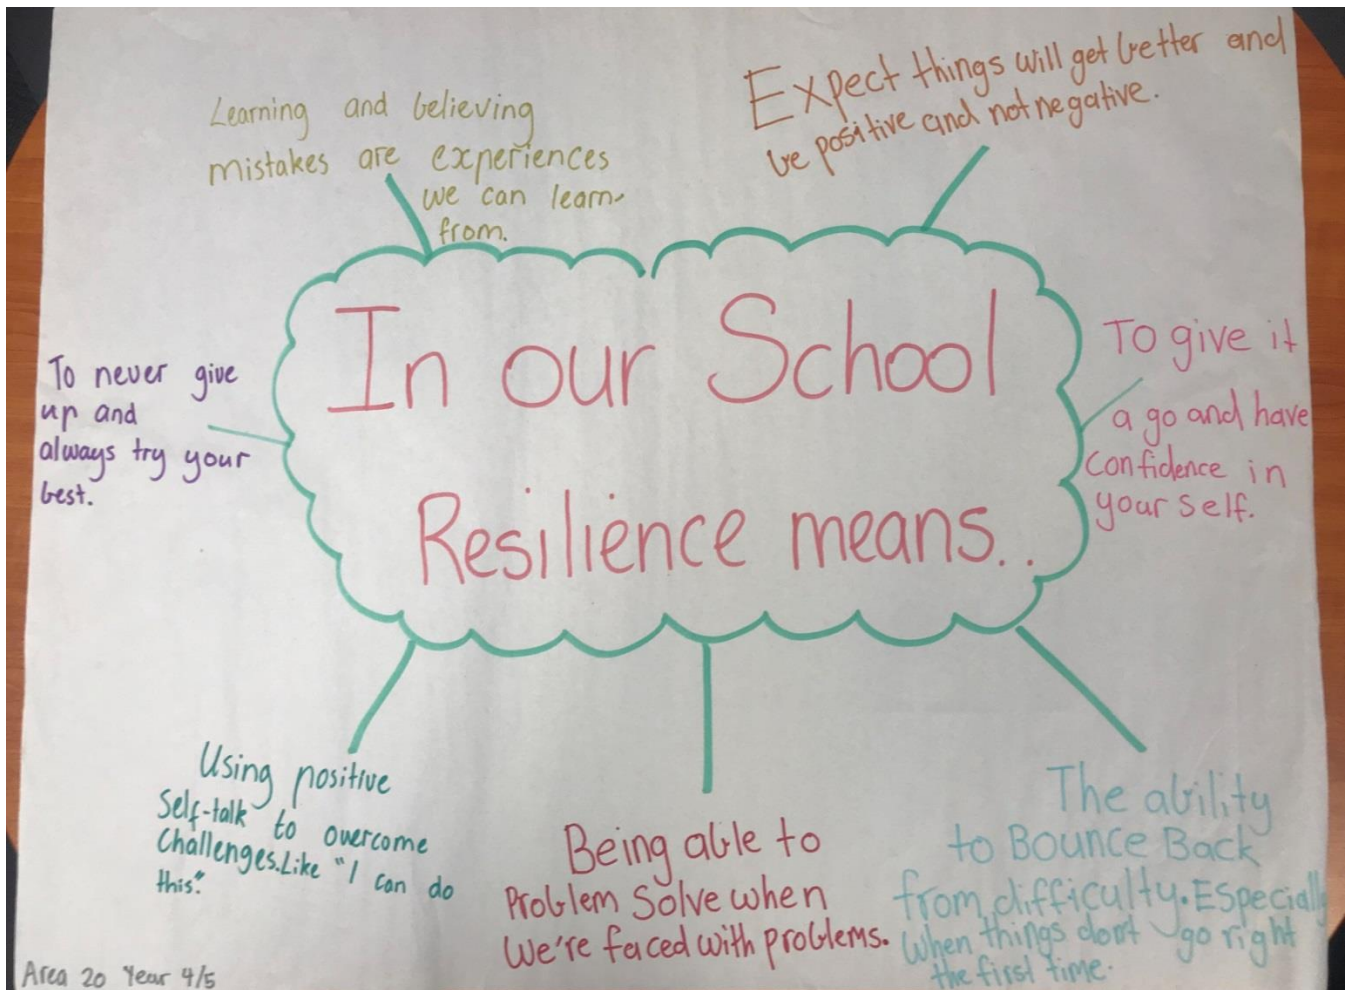 Learning and believing
mistakes are experiences
we can learn
from.
Expect things will get better and
be positive and not negative.
In our School
Resilience means..
To never give
up and
always try your
best.
To give it
a go and have
confidence in
your self.
Using positive
Self-talk to overcome
Challenges. Like "I can do
this".
Being able to
Problem Solve when
We're faced with problems.
The ability
to Bounce Back
from difficulty. Especially
when things don't go right
the first time.
Area 20 Year 4/5